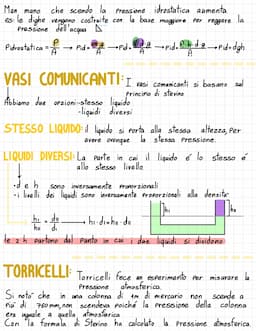 Man mano che scendo la pressione idrostatica aumenta.
es: le dighe vengono costruite con la base maggiore per reggere la
pressione dell'acqua
Pidrostatica = F/A → Pid =
→ Pid =
→ Pid =
→ Pid = dgh
VASI COMUNICANTI: I vasi comunicanti si basano sul
principio di stevino
Abbiamo due opzioni-stesso liquido
-liquidi diversi
STESSO LIQUIDO: il liquido si porta alla stessa altezza, per
avere ovunque la stessa pressione.
LIQUIDI DIVERSI: La parte in cui il liquido è lo stesso è
allo stesso livello
• d e h sono inversamente proporzionali
• i livelli dei liquidi sono inversamente proporzionali alla densità:
h1/h2 = d2/d1 → h1·d1=h2·d2
le 2 h partono dal punto in cui i due liquidi si dividono
TORRICELLI: Torricelli fece un esperimento per misurare la
pressione atmosferica.
Si notò che in una colonna di 1m di mercurio non scende a
più di 760mm, non scendeva poiché la pressione della colonna
era uguale a quella atmosferica
Con la formula di Stevino ha calcolato la pressione atmosferica.